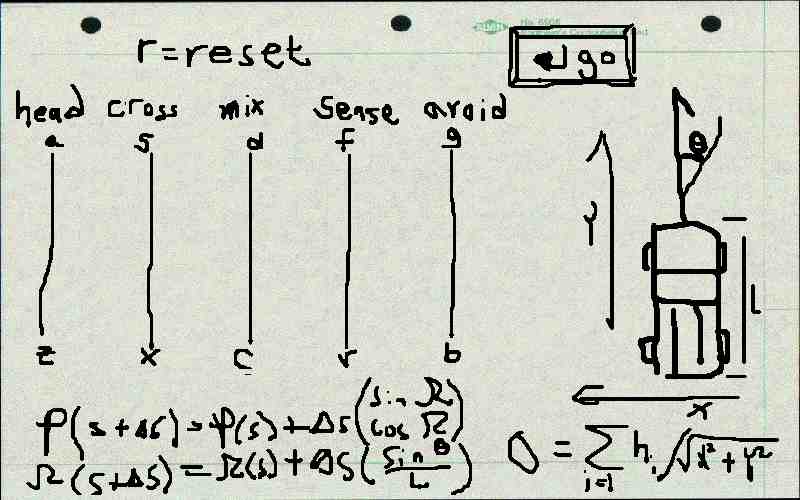 No. 5505
r = reset
go
head cross mix sense avoid
a s d f g
θ
Y
L
z x c v b
x
p(s+Δs) = p(s) + Δs (sin Ω cos Ω)
Ω(s+Δs) = Ω(s) + Δs (sin θ / L)
O = Σ i=1 h_i / √(x² + y²)